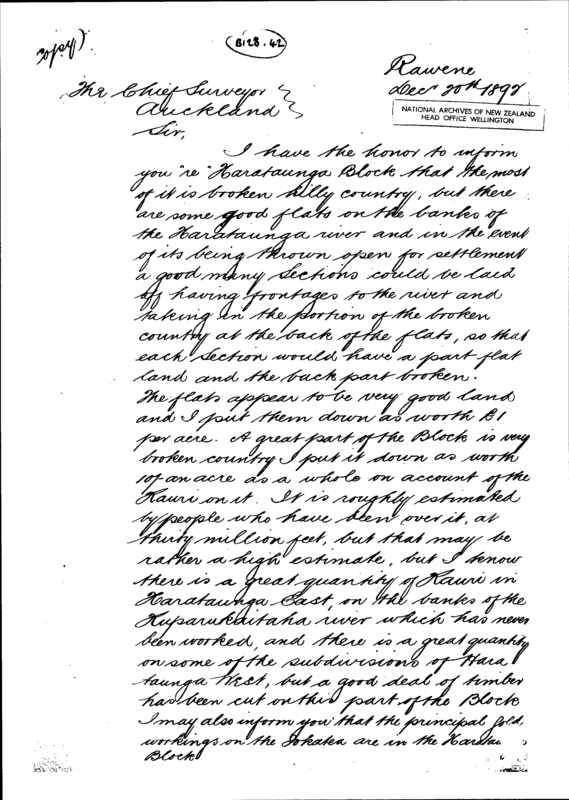 (B128.42)
Copy).
Rawene
Decr 20th 1892
NATIONAL ARCHIVES OF NEW ZEALAND
HEAD OFFICE WELLINGTON
The Chief Surveyor
Auckland
Sir,
I have the honor to inform
you "re" Harataunga Block that the most
of it is broken hilly country, but there
are some good flats on the banks of
the Harataunga river and in the event
of its being thrown open for settlement
a good many sections could be laid
off having frontages to the river and
taking in the portion of the broken
country at the back of the flats, so that
each section would have a part flat
land and the back part broken.
The flats appear to be very good land
and I put them down as worth £1
per acre. A great part of the Block is very
broken country I put it down as worth
10/- an acre as a whole on account of the
Kauri on it. It is roughly estimated
by people who have been over it, at
thirty million feet, but that may be
rather a high estimate, but I know
there is a great quantity of Kauri in
Harataunga East, on the banks of the
river which has never
been worked, and there is a great quantity
on some of the subdivisions of Hara
taunga West, but a good deal of timber
has been cut on this part of the Block
I may also inform you that the principal Gold
workings on the Tokatea are in the Haratau
Block